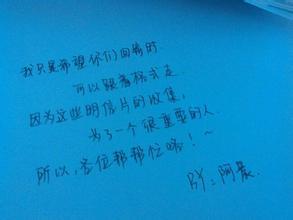 我只是希望你们回输时
可以跟着格式走
因为这些明信片的收集,
为了一个很重要的人.
所以,各位帮帮忙咯!~
BY:阿晨.